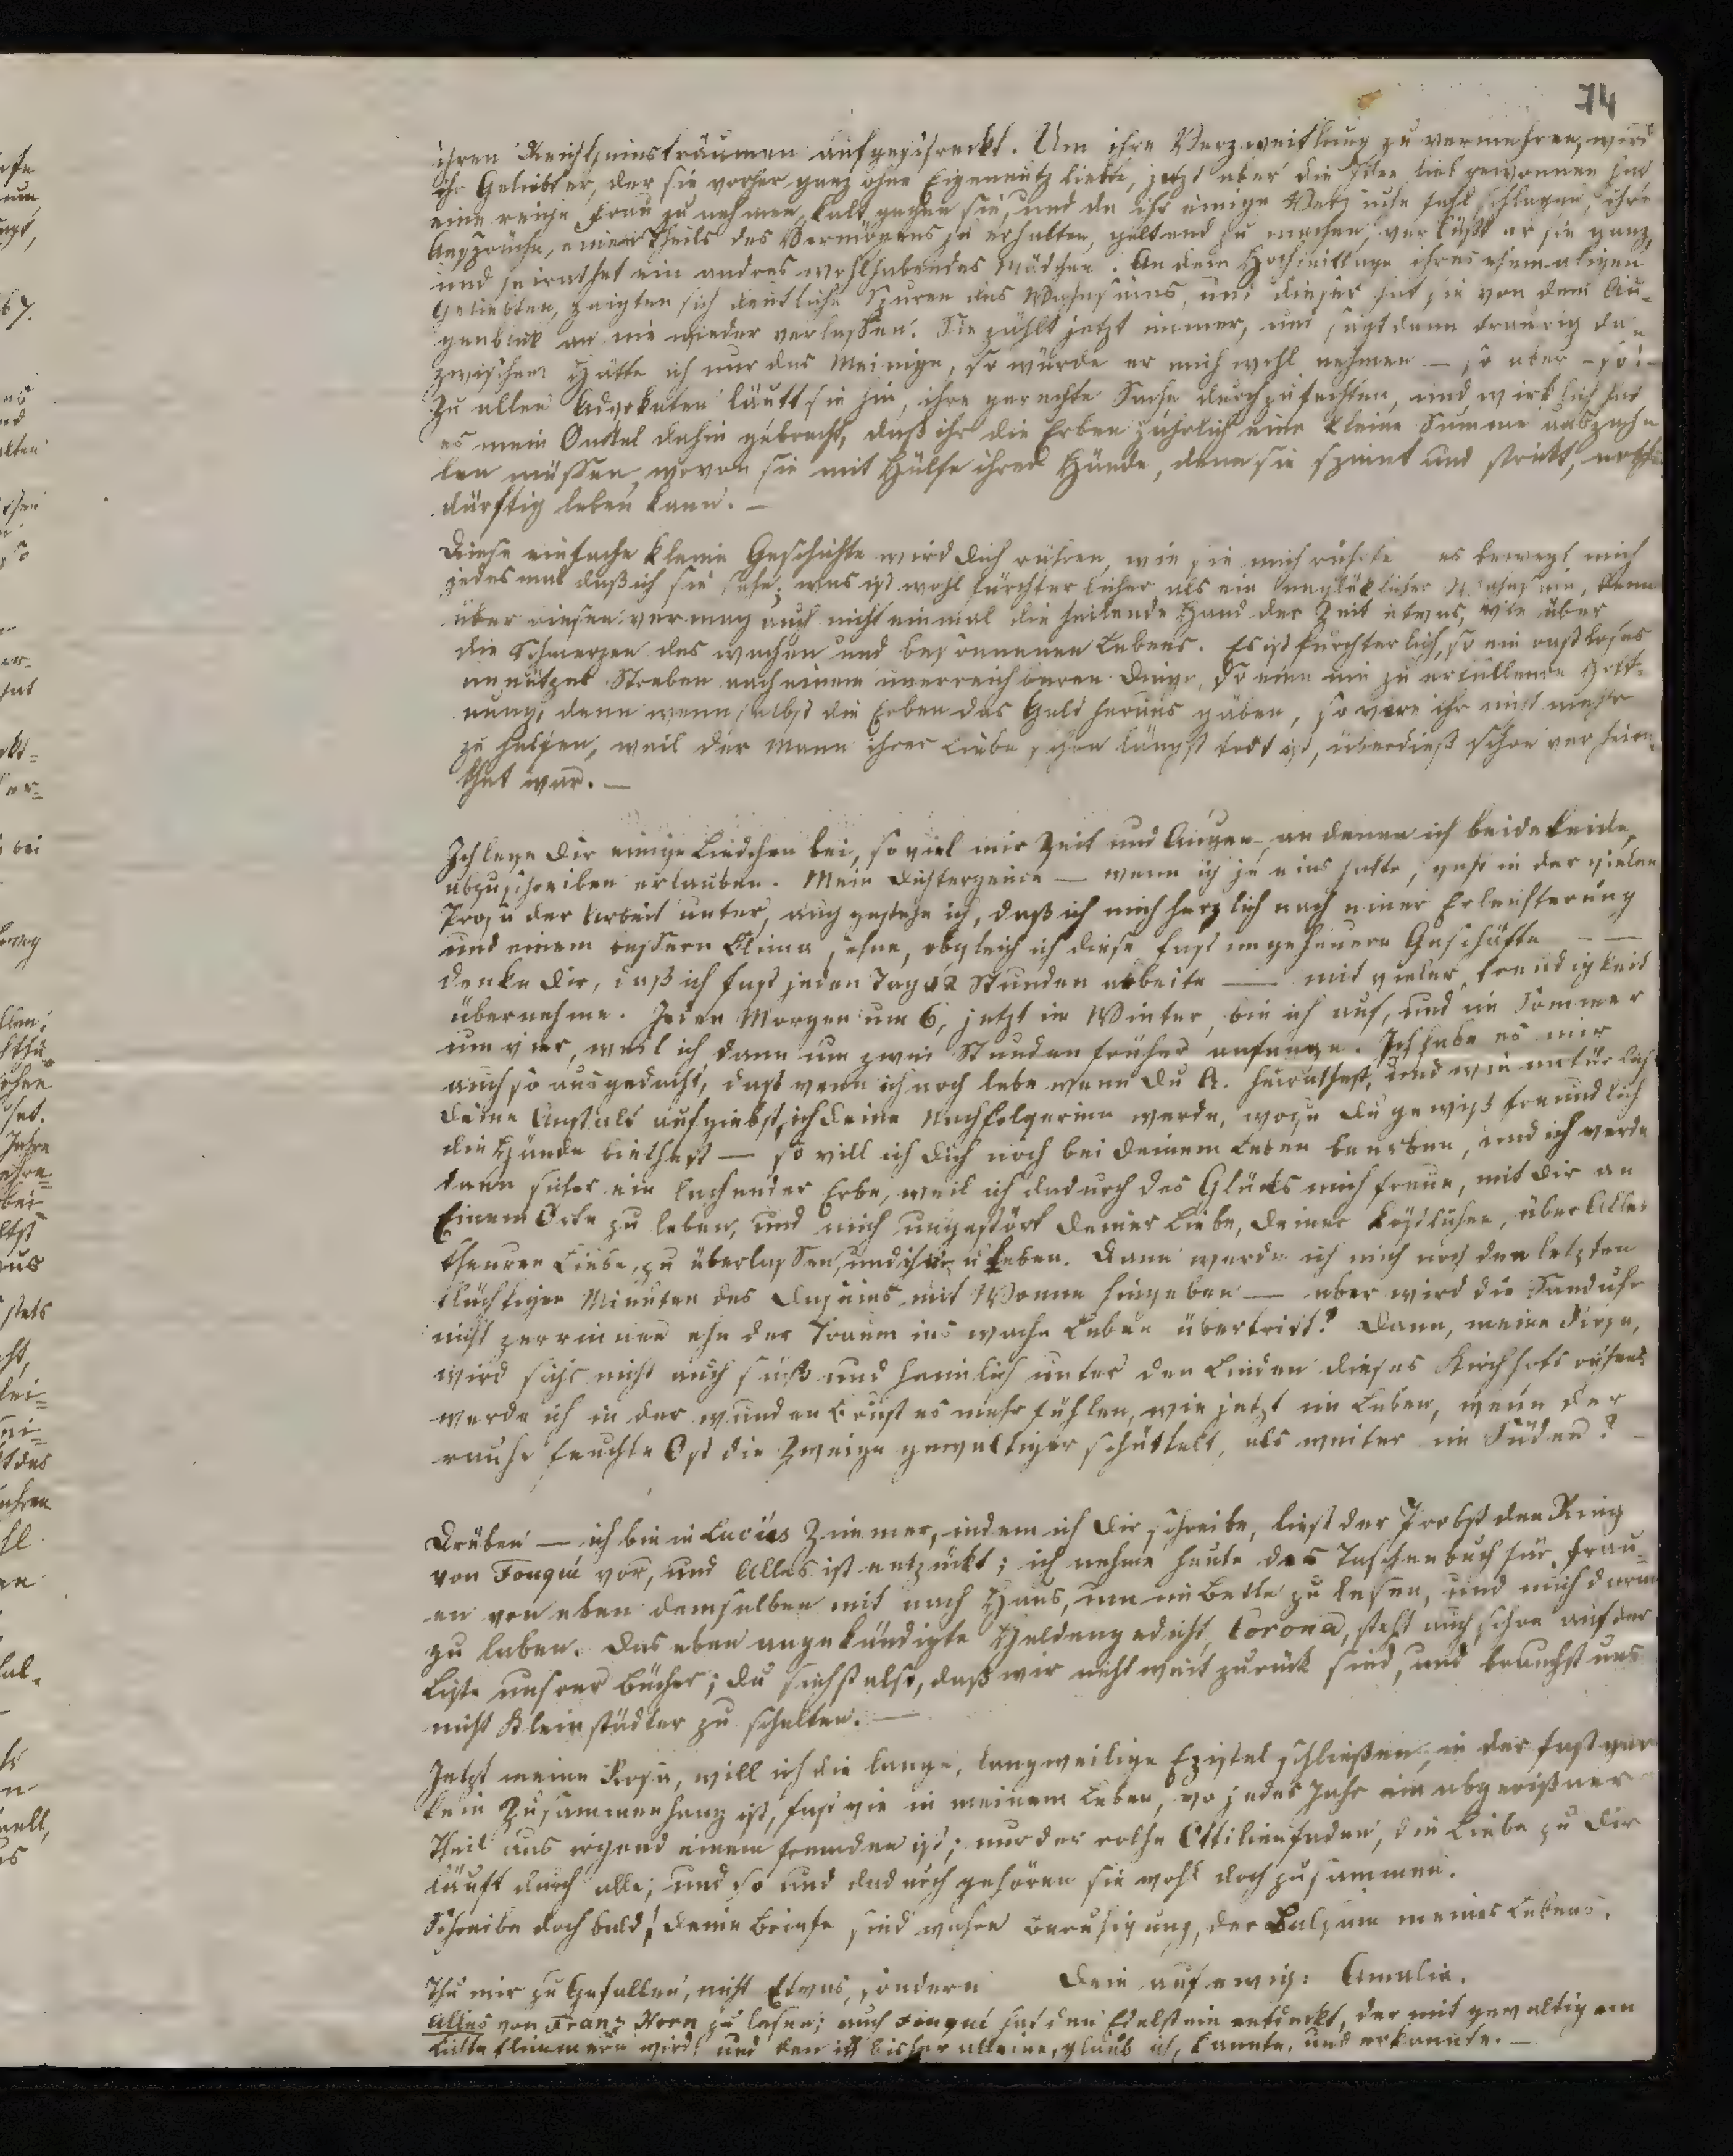 74
ihren Reichthumsträumen aufgeschreckt. Um ihre Verzweiflung zu vermehren, wird
ihr Geliebter, der sie vorher ganz ohne Eigennutz liebte, jetzt aber die Idee lieb gewonnen hat
eine reiche Frau zu nehmen, kalt gegen sie, und da ihr einige Versuche fehl schlagen, ihre
Ansprüche, einen Theils des Vermögens zu erhalten, geltend zu machen, verläßt er sie ganz,
und heirathet ein andres wohlhabendes Mädchen. An dem Hochzeittage ihres ehemaligen
Geliebten, zeigten sich deutliche Spuren des Wahnsinns, und dieser hat sie von dem Au-
genblick an nie wieder verlassen. Sie zählt jetzt immer, und sagt dann traurig da-
zwischen Hätte ich nur das Meinige, so würde er mich wohl nehmen — so aber – so! –
Zu allen Advokaten läuft sie hin, ihre gerechte Sache durchzufechten, und wirklich hat
es mein Onkel dahin gebracht, daß ihr die Erben jährlich eine kleine Summe auszah-
len müssen, wovon sie mit Hülfe ihrer Hände, denn sie spinnt und strickt, noth-
dürftig leben kann. —
Diese einfache kleine Geschichte wird Dich rühren, wie sie mich rührte es bewegt mich
jedesmal daß ich sie sehe; was ist wohl fürchterlicher als ein unglücklicher Wahnsinn, denn
über diesen vermag auch nicht einmal die heilende Hand der Zeit etwas, wie über
die Schmerzen des wachen und besonnenen Lebens. Es ist fürchterlich, so ein rastloses
unnützes Streben nach einem unerreichbaren Dinge, so eine nie zu erfüllende Hoff-
nung, denn wenn selbst die Erben das Geld heraus gäben, so wäre ihr nicht mehr
zu helfen, weil der Mann ihrer Liebe schon längst todt ist, überdieß schon verheira-
thet war. —
Ich lege Dir einige Liedchen bei, soviel mir Zeit und Augen, an denen ich beide leide,
abzuschreiben erlauben. Mein Dichtergenie — wenn ich je eins hatte, geht in der vielen
Prosa der Arbeit unter, auch gestehe ich, daß ich mich herzlich nach einer Erleichterung
und einem bessern Clima sehne, obgleich ich diese fast ungeheuern Geschäfte — —
denke Dir, daß ich fast jeden Tag 12 Stunden arbeite — mit vieler Freudigkeit
übernehme. Jeden Morgen um 6, jetzt im Winter, bin ich auf, und im Sommer
um vier, weil ich dann um zwei Stunden früher anfange. Ich habe es mir
auch so ausgedacht, daß wenn ich noch lebe wenn Du A. heirathest, und wie natürlich
Deine Anstalt aufgiebst, ich Deine Nachfolgerinn werde, wozu Du gewiß freundlich
die Hände biethest — so will ich Dich noch bei Deinem Leben beerben, und ich werde
dann sicher ein lachender Erbe, weil ich dadurch des Glücks mich freue, mit Dir an
Einem Orte zu leben, und mich ungestört Deiner Liebe, Deiner köstlichen, über Alles
theuren Liebe, zu überlassen, und ihr zu leben. Dann werde ich mich noch den letzten
flüchtigen Minuten des Daseins mit Wonne hingeben — aber wird die Sanduhr
nicht zerrinnen ehe der Traum ins wache Leben übertritt? Dann, meine Rosa,
wird sichs nicht auch süß und heimlich unter den Linden dieses Kirchhofs ruhen?
werde ich in der wunden Brust es mehr fühlen, wie jetzt im Leben, wenn der
rauhe feuchte Ost die Zweige gewaltiger schüttelt, als weiter im Süden? —
Drüben — ich bin in Lucies Zimmer, indem ich Dir schreibe, liest der Probst den Ring
von Fouqué vor, und Alles ist entzückt; ich nehme heute das Taschenbuch für Frau-
en von eben demselben mit nach Haus, um im Bette zu lesen, und mich daran
zu laben. Das eben angekündigte Heldengedicht, Corona, steht auch schon auf der
Liste unsrer Bücher; Du siehst also, daß wir nicht weit zurück sind, und brauchst uns
nicht Kleinstädter zu schelten. —
Jetzt meine Rosa, will ich die lange, langweilige Epistel schließen, in der fast gar
kein Zusammenhang ist, fast wie in meinem Leben, wo jedes Jahr ein abgerißner
Theil aus irgend einem fremden ist; nur der rothe Ottilienfaden, die Liebe zu Dir
läuft durch alle, und so und dadurch gehören sie wohl doch zusammen.
Schreibe doch bald! Deine Briefe sind wahre Beruhigung, der Balsam meines Lebens.
Thu mir zu Gefallen, nicht Etwas, sondern Dein auf ewig: Amalia.
Alles von Franz Horn zu lesen; auch Fouqué hat den Edelstein entdeckt, der mit gewaltigem
Lichte flimmern wird! und den ich bisher alleine, glaub ich, kannte, und erkannte. —